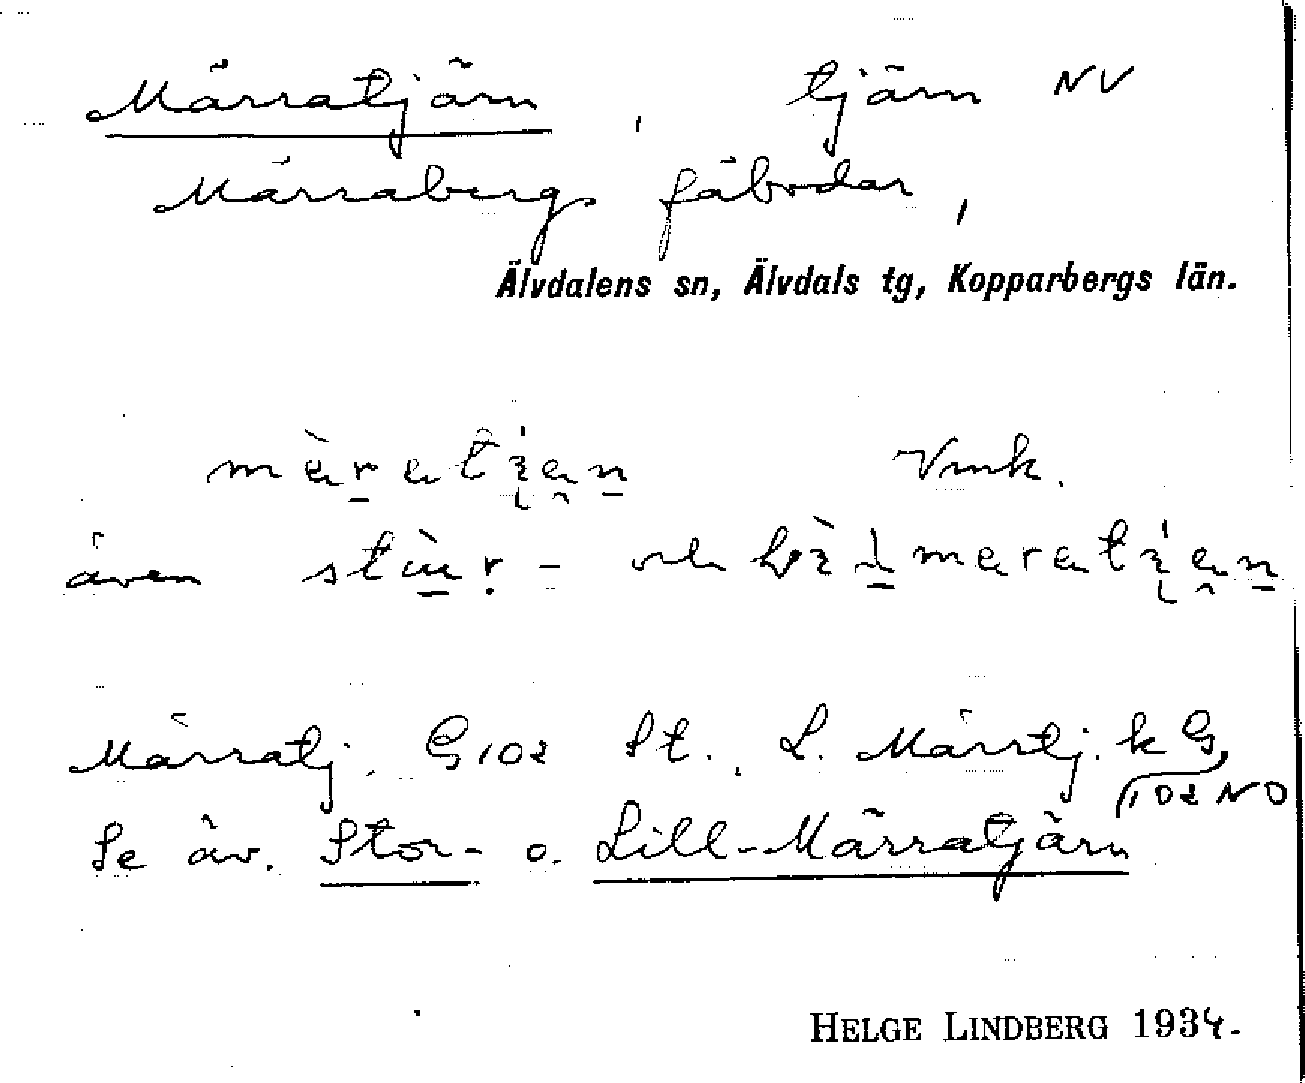 Märratjärn, tjärn NV
Märrabergs fäbodar,
Älvdalens sn, Älvdals tg, Kopparbergs län.
Vmk.
även och
Märratj. G102 St., L. Märrtj. k G
102 NO
Se äv. Stor- o. Lill-Märratjärn
HELGE LINDBERG 1934.